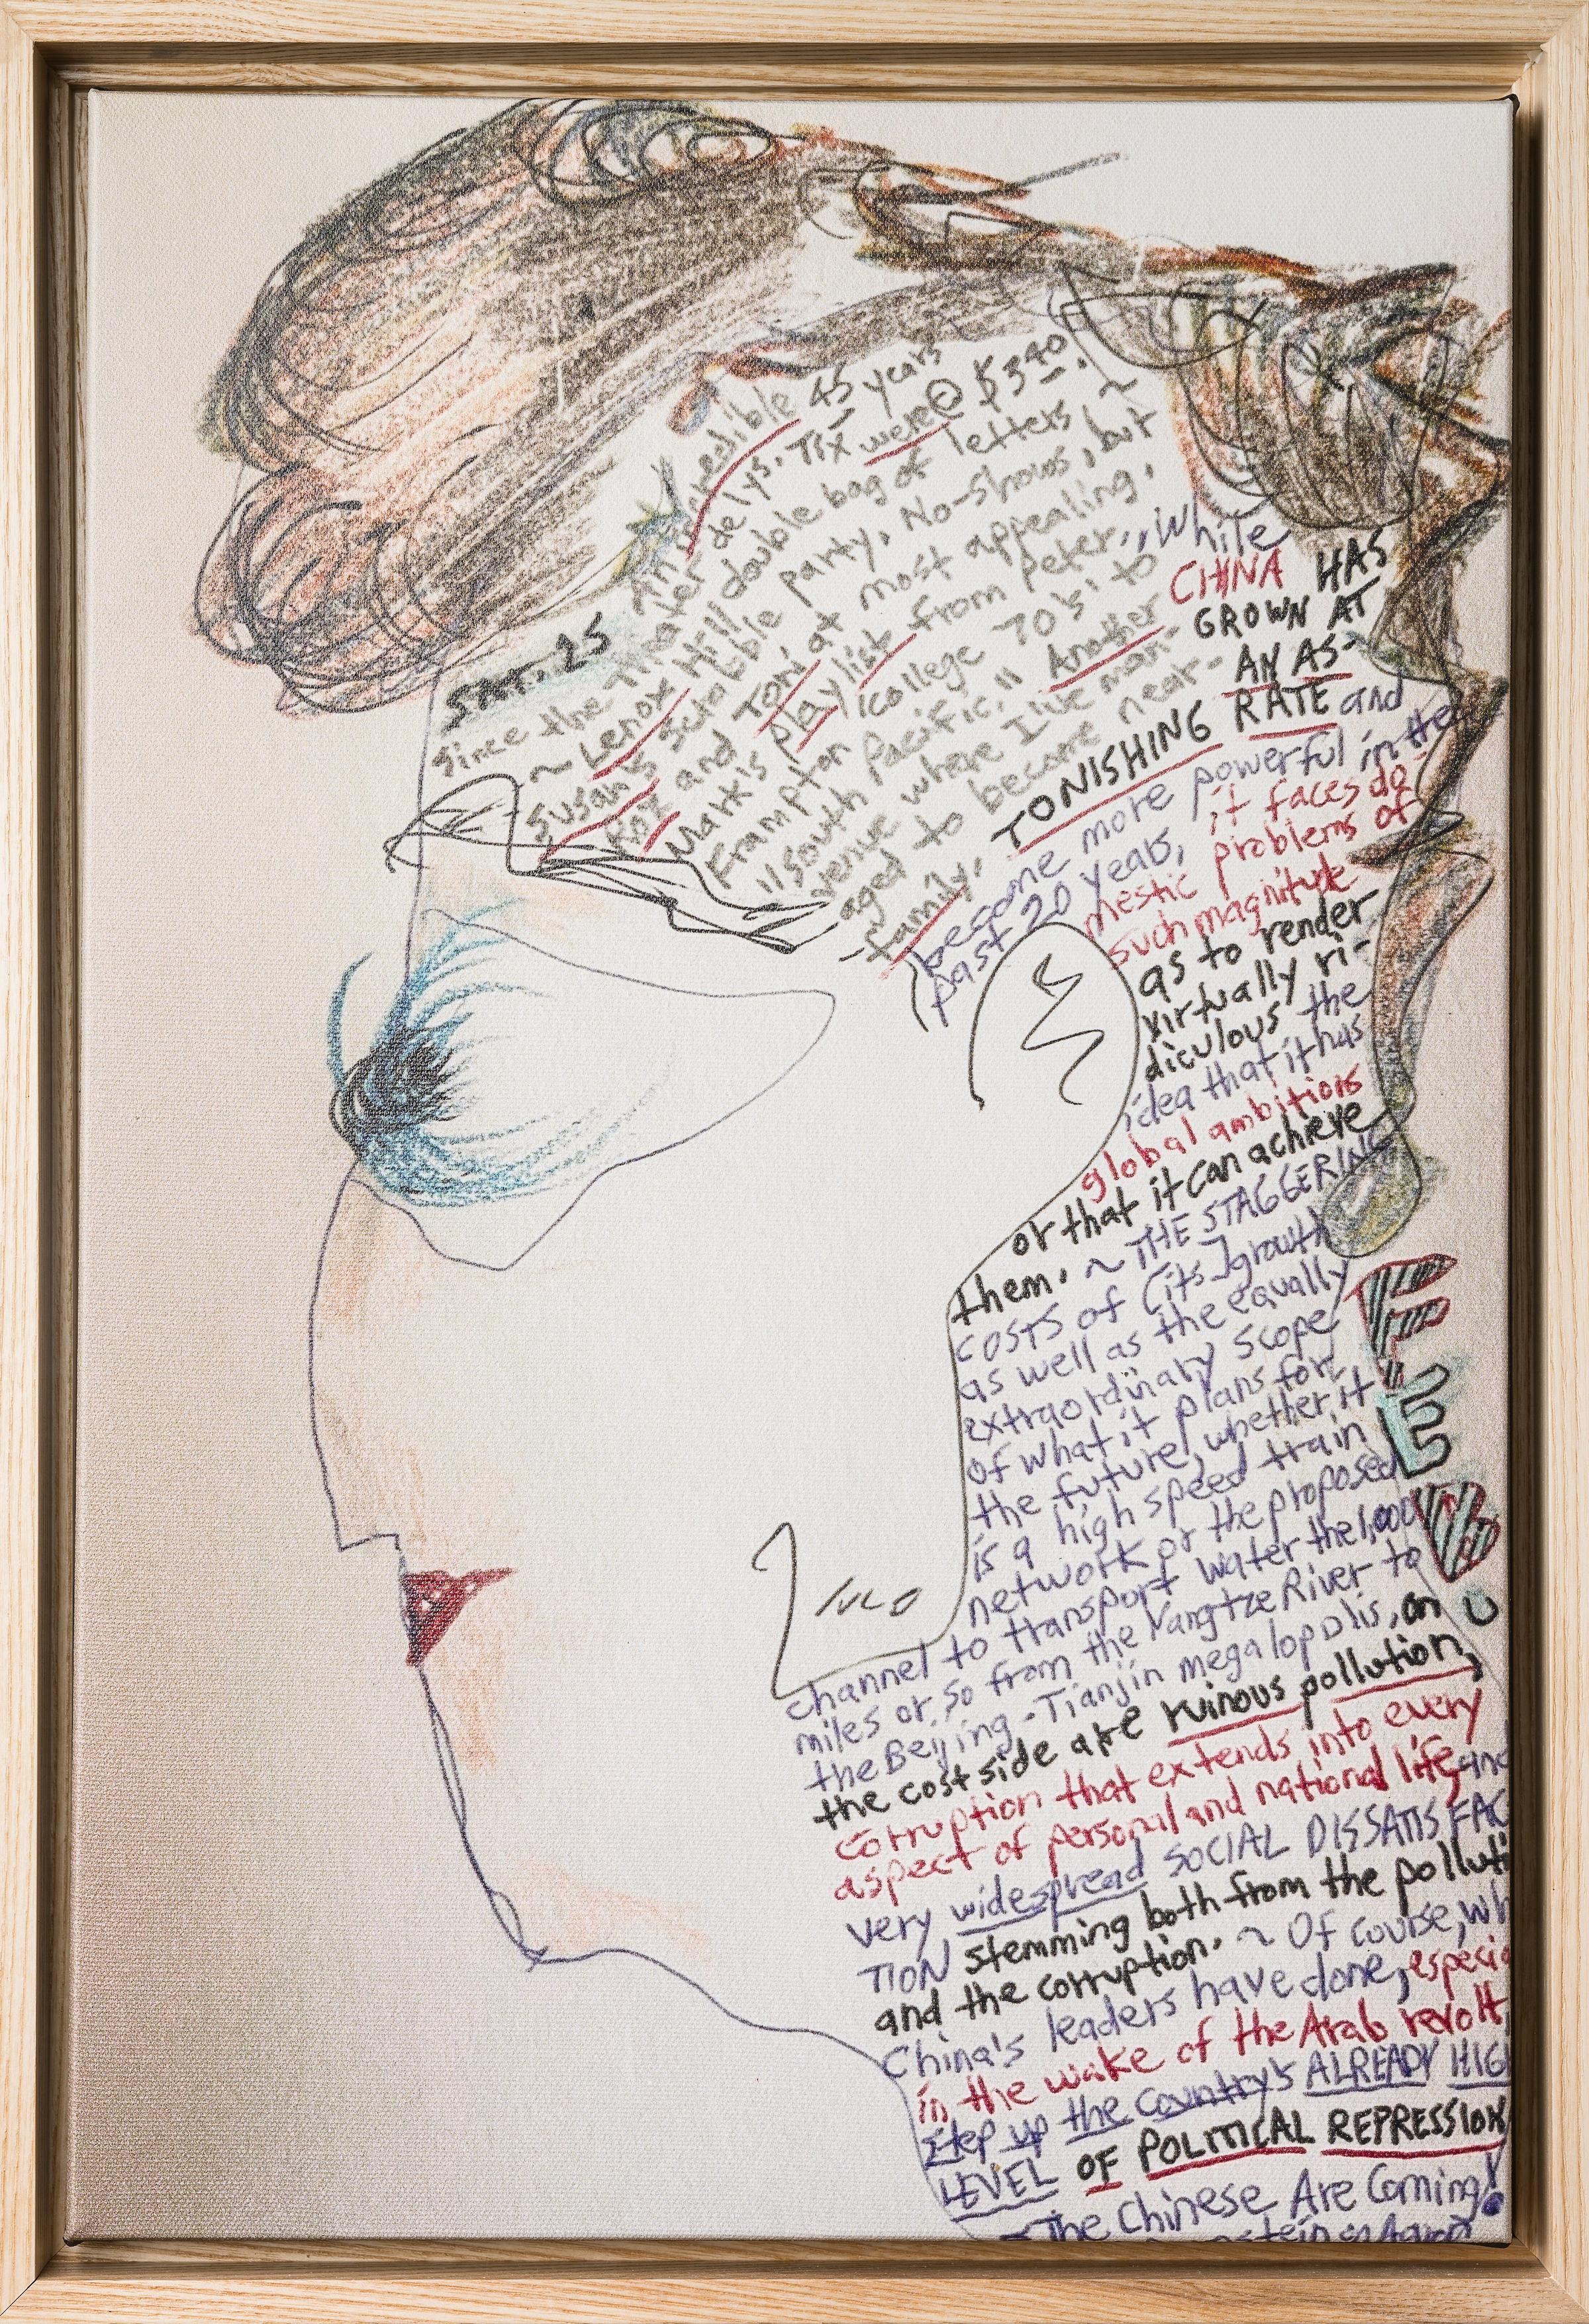 SAT. 25 An incredible 45 years
since the Theater de Lys. Tix were @ $3.40.
~ Lenox Hill double bag of letters ~
Susan's Scrabble party. No-shows, but
and Toni at most appealing.
Mark's playlist from Peter
Frampton college 70's! to
"South Pacific." Another
venue where I live man-
aged to become near-
family.
"While
CHINA HAS
GROWN AT
AN AS-
TONISHING RATE and
become more powerful in the
past 20 years, it faces do-
mestic problems of
such magnitude
as to render
virtually ri-
diculous the
idea that it has
global ambitions
or that it can achieve
them. ~ THE STAGGERING
COSTS of [its] growth
as well as the equally
extraordinary scope
of what it plans for
the future, whether it
is a high speed train
network or the proposed
channel to transport water the 1,000
miles or so from the Yangtze River to
the Beijing-Tianjin megalopolis, on
the cost side are ruinous pollution,
corruption that extends into every
aspect of personal and national life, and
very widespread SOCIAL DISSATISFAC
TION stemming both from the polluti
and the corruption. ~ Of course, wh
China's leaders have done, especia
in the wake of the Arab revolt,
step up the country's ALREADY HIG
LEVEL OF POLITICAL REPRESSION
~ The Chinese Are Coming!
FEB